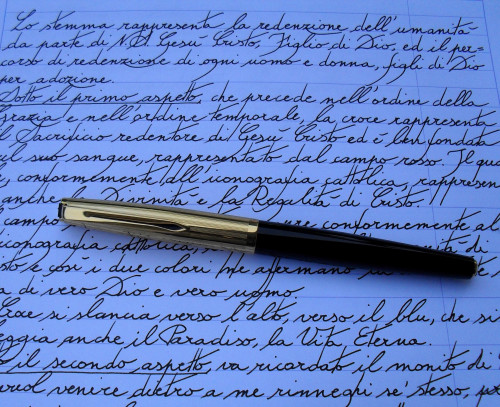 Lo stemma rappresenta la redenzione dell'umanità
da parte di N.S. Gesù Cristo, Figlio di Dio, ed il per-
corso di redenzione di ogni uomo e donna, figli di Dio
per adozione.
Sotto il primo aspetto, che precede nell'ordine della
Grazia e nell'ordine temporale, la croce rappresenta
il Sacrificio redentore di Gesù Cristo ed è ben fondata
sul suo sangue, rappresentato dal campo rosso. Il
e, conformemente all'iconografia cattolica,
anche la Divinità e la Regalità di Cristo.
campo conformemente al
iconografia cattolica, di
sto e così i due colori affermano
a di vero Dio e vero uomo.
Croce si slancia verso l'alto, verso il blu, che
eggia anche il Paradiso, la Vita Eterna.
il secondo aspetto, va ricordato il monito di
vuol venire dietro a me rinneghi sé stesso,